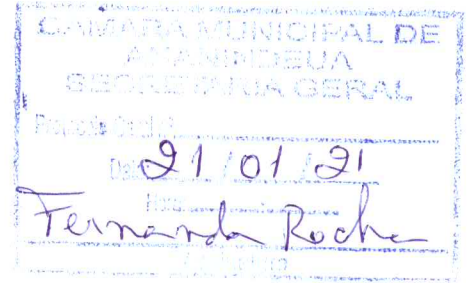 CÂMARA MUNICIPAL DE
ANANINDEUA
SECRETARIA GERAL
Data 21/01/21
Hora
Fernanda Rocha